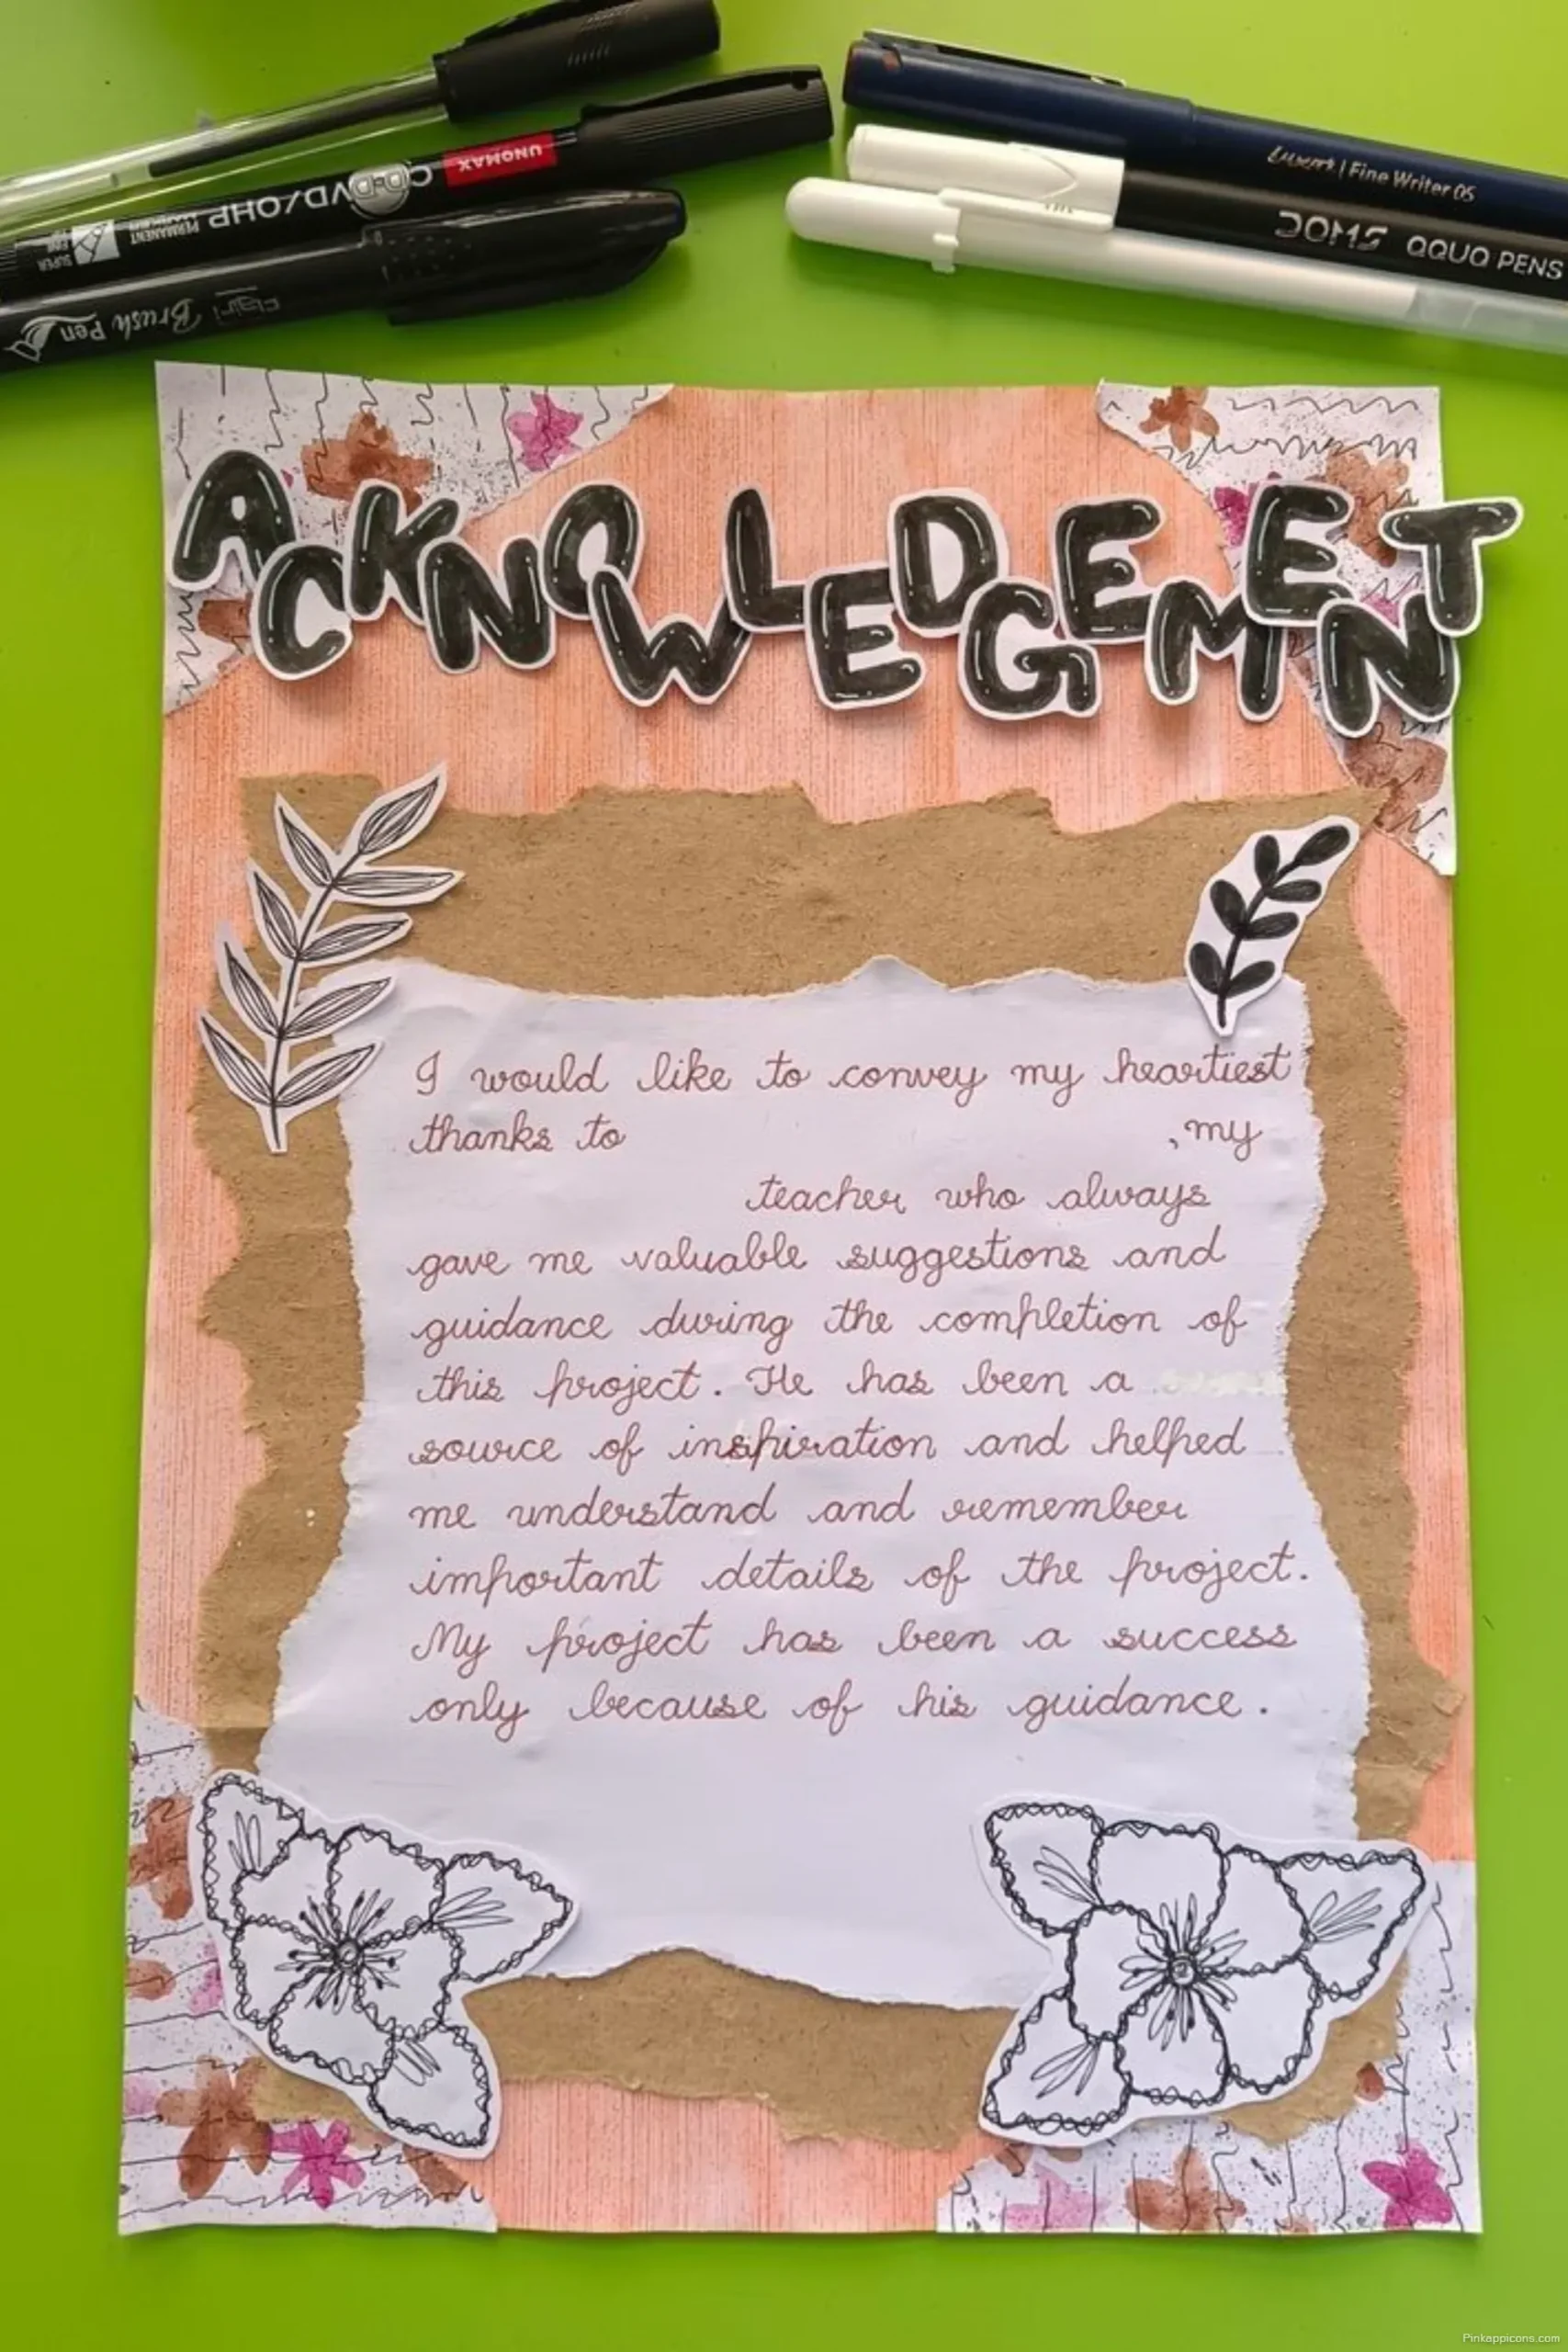 UNOMAX
CD-DVD/OHP
PERMANENT
MARKER
SUPER
FINE
Flair
Brush Pen
Luxor | Fine Writer 05
DOMS QQUO PENS
ACKNOWLEDGEMENT
I would like to convey my heartiest
thanks to , my
teacher who always
gave me valuable suggestions and
guidance during the completion of
this project. He has been a
source of inspiration and helped
me understand and remember
important details of the project.
My project has been a success
only because of his guidance.
Pinkappicons.com